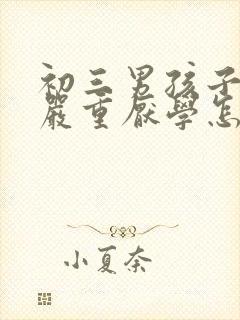 初三男孩子
嚴重厭學怎
小夏奈